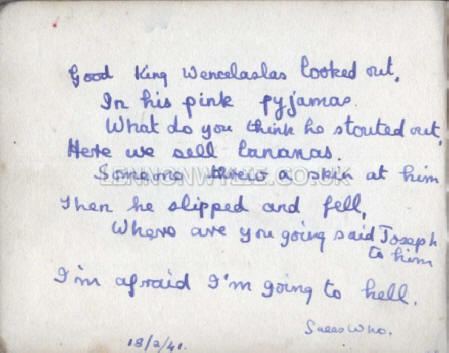 Good King Wencelaslas looked out,
In his pink pyjamas.
What do you think he stouted out,
Here we sell bananas.
Someone threw a skin at him
LENNONWYLIE.CO.UK
Then he slipped and fell,
Where are you going said Joseph
to him
I'm afraid I'm going to hell.
Guess Who.
18/2/41.